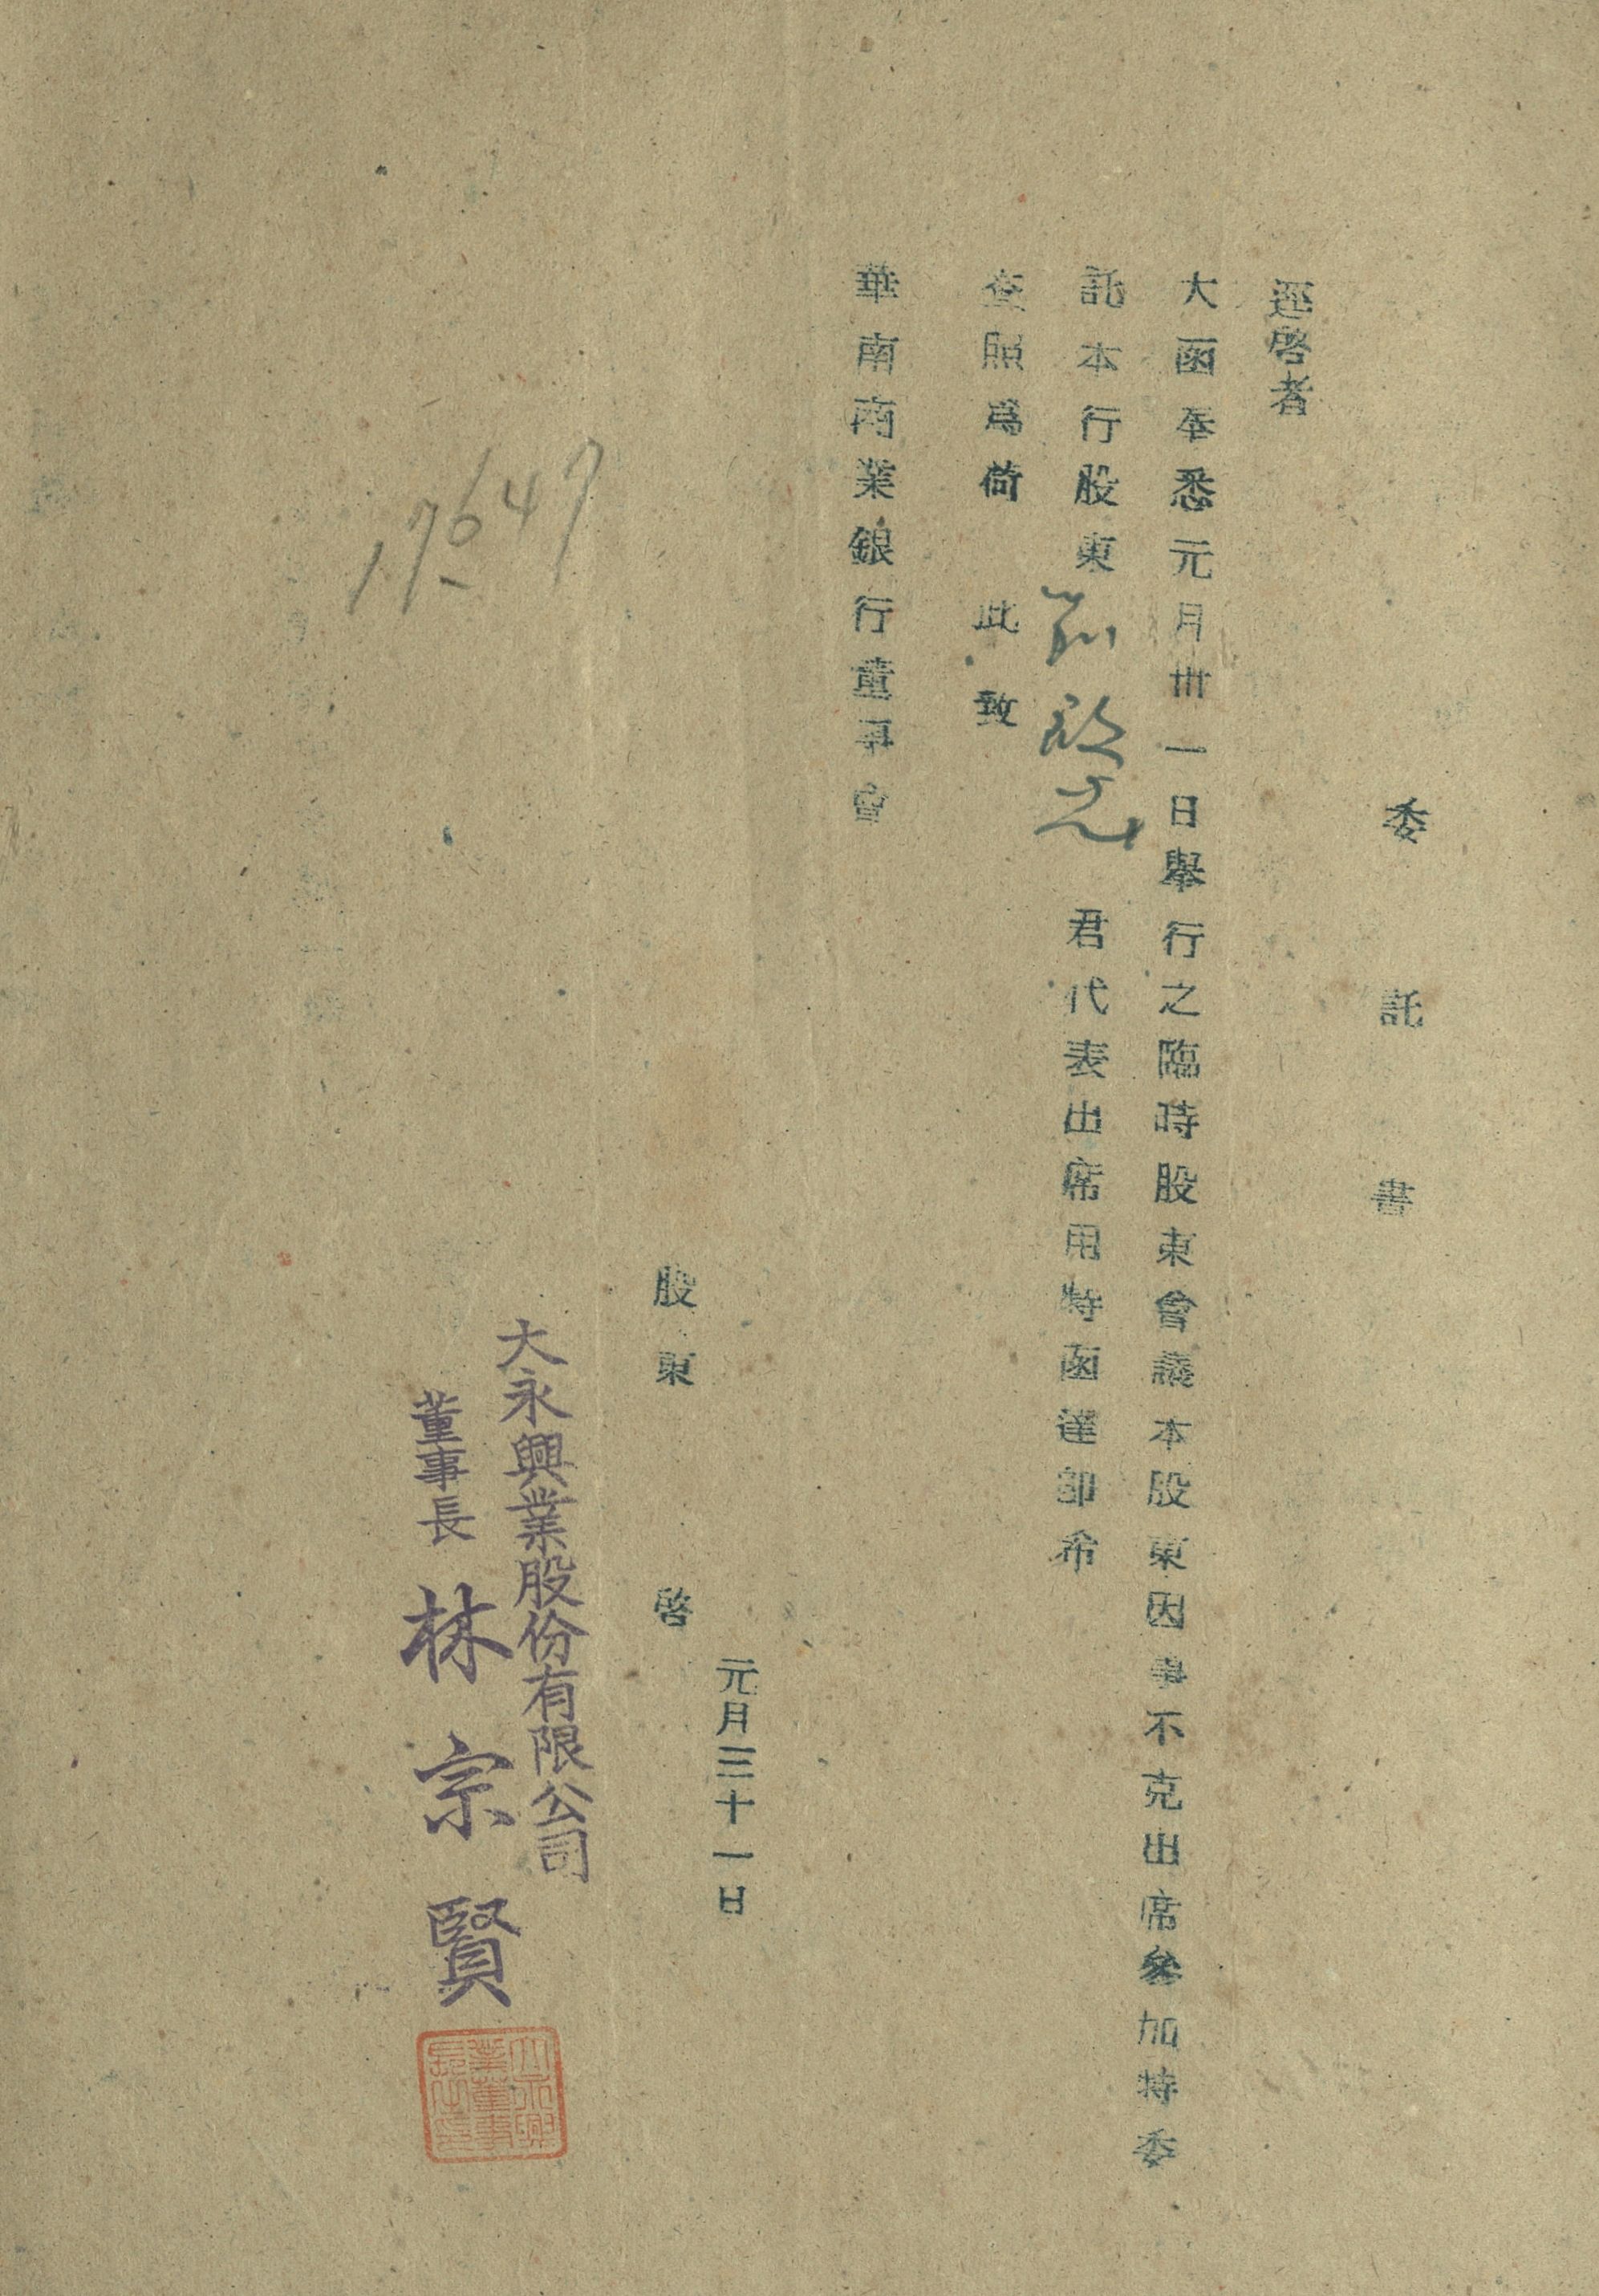 委託書
逕啓者
大函奉悉元月卅一日舉行之臨時股東會議本股東因事不克出席參加特委
託本行股東劉啟光 君代表出席用特函達卽希
查照爲荷 此致
華南商業銀行董事會
元月三十一日
股東 啓
大永興業股份有限公司
董事長 林宗賢
大永興
業董事
長之印
17647